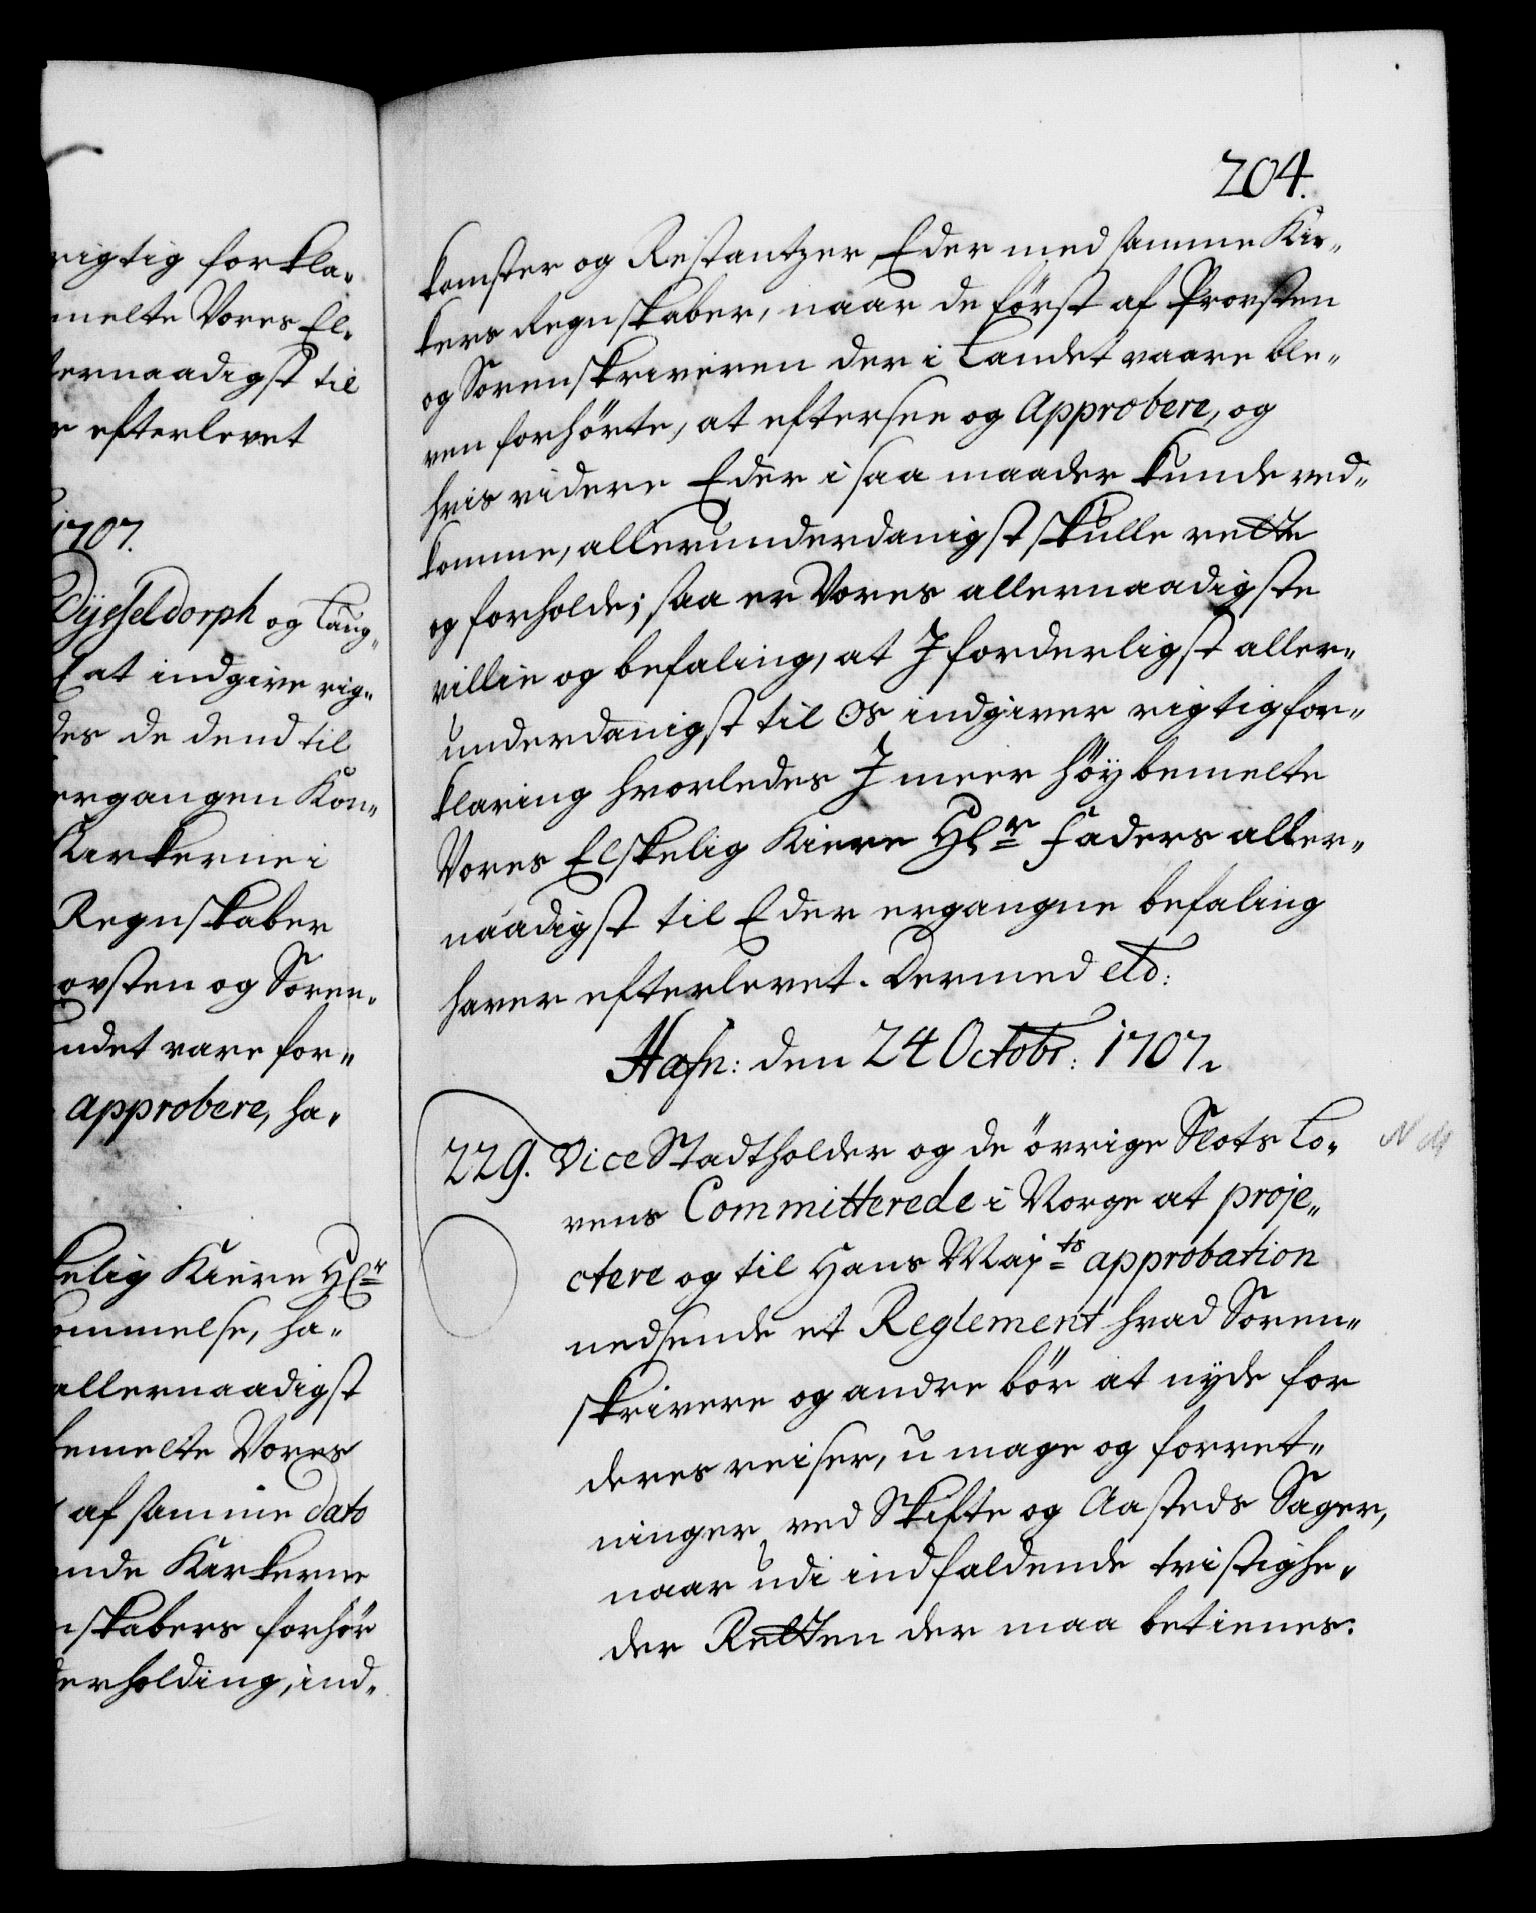 rigtig forkla¬
melte Vores El¬
ernaadigst til
efterlevet
1707.
Dysseldorph og Laug¬
at indgive rig¬
des de dend til
ergangen Kon¬
Kirkerne i
Regnskaber
ovsten og Soren¬
ndet vare for¬
approbere, ha¬
kelig Kiere Hr
ommelse, ha¬
allernaadigst
bemelte Vores
af samme dato
nde Kirkerne
skabers forhör
derholding, ind¬
204.
komster og Restantzer, Eder med samme Kir¬
kers Regnskaber, naar de först af Provsten
og Sorenskriveren der i Landet vaare ble¬
ven forhörte, at eftersee og Approbere, og
hvis videre Eder i saa maader kunde ved¬
komme, allerunderdanigst skulle rette
og forholde; saa er Vores allernaadigste
villie og befaling, at I forderligst aller¬
underdanigst til Os indgiver rigtig for¬
klaring hvorledes I meer höybemelte
Vores Elskelig Kiere Hr Faders aller¬
naadigst til Eder ergangne befaling
haver efterlevet. Dermed etc:
Hafn: den 24 Octobr: 1707.
229. Vice Stadtholder og de övrige Slots Lo¬
vens Committerede i Norge at proje¬
ctere og til Hans Majts approbation
nedsende et Reglement hvad Soren¬
skrivere og andre bör at nyde for
deres reiser, umage og forret¬
ninger ved Skifte og Aasteds Sager,
naar udi indfaldende tvistighe¬
der Retten der maa betienes.